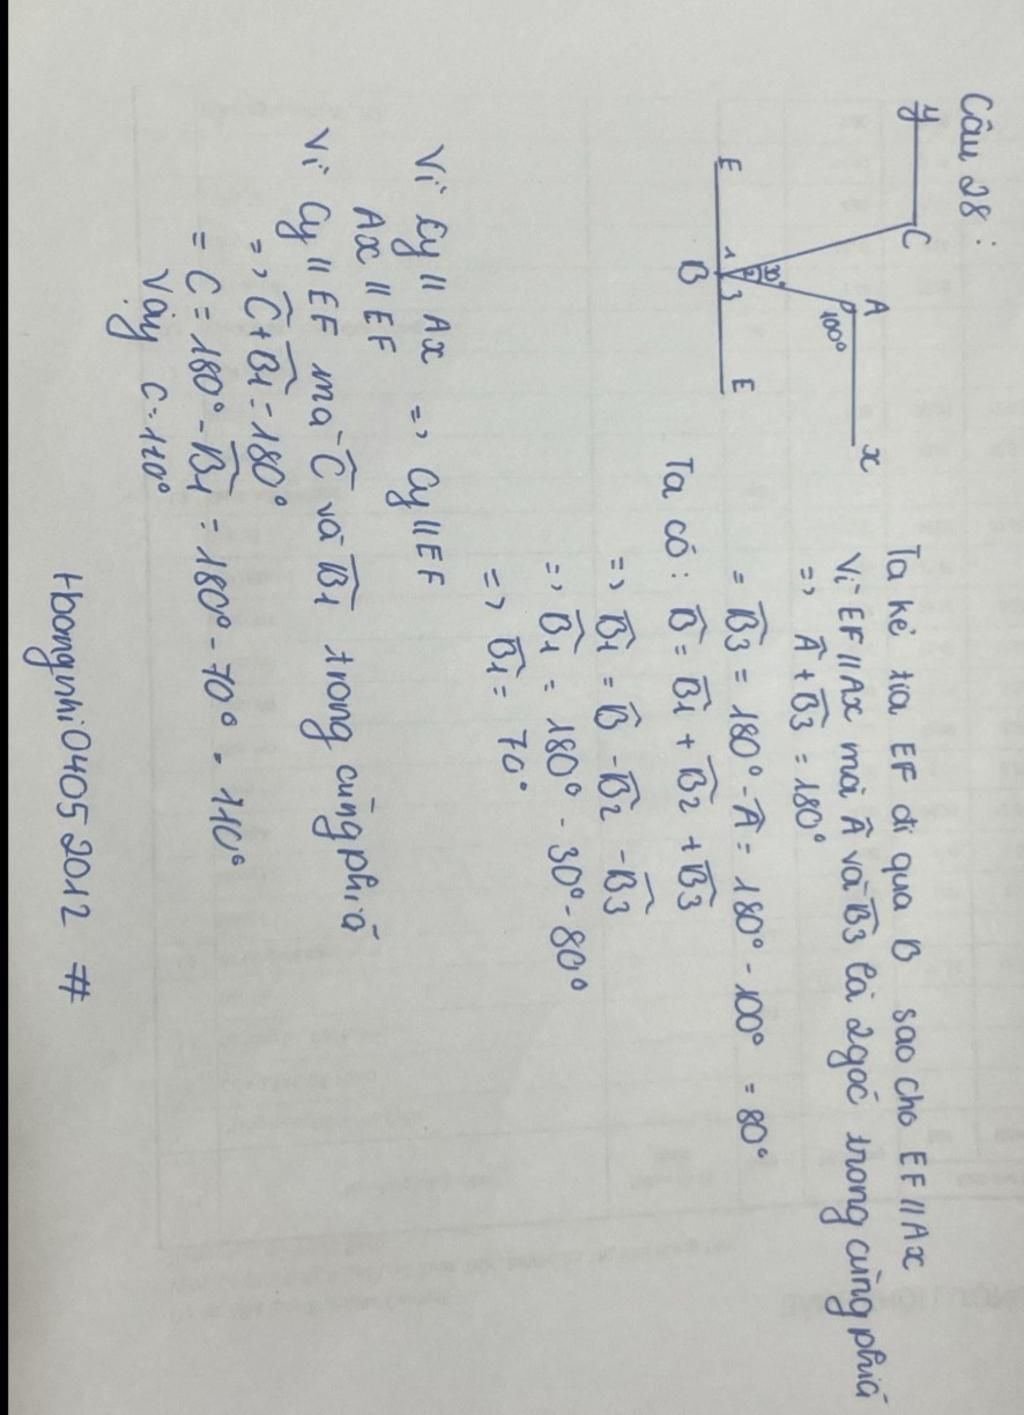 Câu 28:
y C A x
100°
30°
E 1 2 3 E
B
Ta kẻ tia EF đi qua B sao cho EF // Ax
Vì EF // Ax mà Â và B̂3 là 2 góc trong cùng phía
=> Â + B̂3 = 180°
= B̂3 = 180° - Â = 180° - 100° = 80°
Ta có: B̂ = B̂1 + B̂2 + B̂3
=> B̂1 = B̂ - B̂2 - B̂3
=> B̂1 = 180° - 30° - 80°
=> B̂1 = 70°
Vì Cy // Ax => Cy // EF
Ax // EF
Vì Cy // EF mà Ĉ và B̂1 trong cùng phía
=> Ĉ + B̂1 = 180°
= C = 180° - B̂1 = 180° - 70° = 110°
Vậy C = 110°
Hbongnhi04052012 #